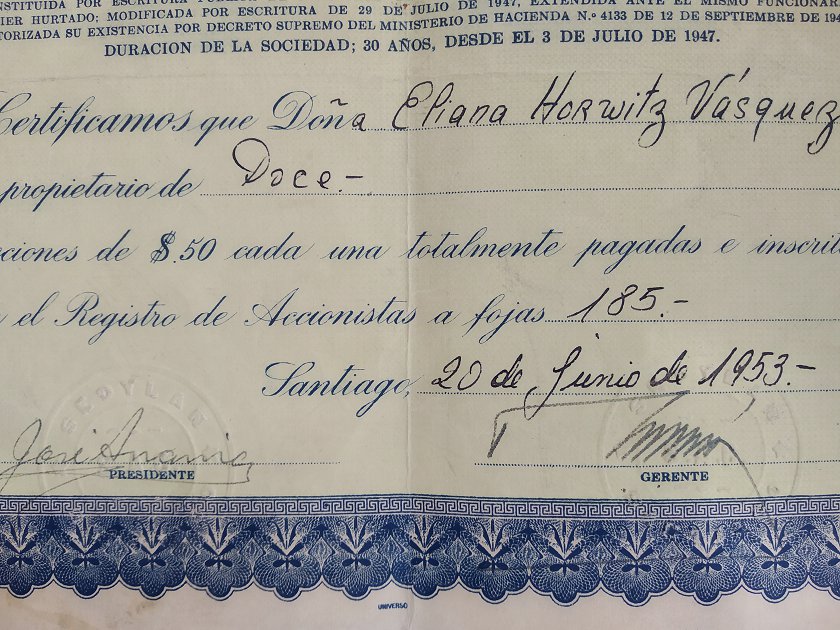 ESCRITURA DE 29 DE JULIO DE 1947, EXTENDIDA ANTE EL MISMO
IER HURTADO; MODIFICADA POR ESCRITURA DE 29 DE JULIO DE 1947, EXTENDIDA ANTE EL MISMO FUNCIONARI
TORIZADA SU EXISTENCIA POR DECRETO SUPREMO DEL MINISTERIO DE HACIENDA N.º 4133 DE 12 DE SEPTIEMBRE DE 194
DURACION DE LA SOCIEDAD; 30 AÑOS, DESDE EL 3 DE JULIO DE 1947.
Certificamos que Doña Eliana Horwitz Vásquez
propietario de Doce.-
cciones de $.50 cada una totalmente pagadas e inscrit
el Registro de Accionistas a fojas 185.-
Santiago, 20 de Junio de 1953.-
SEPYLAN
José Anania
PRESIDENTE
GERENTE
UNIVERSO